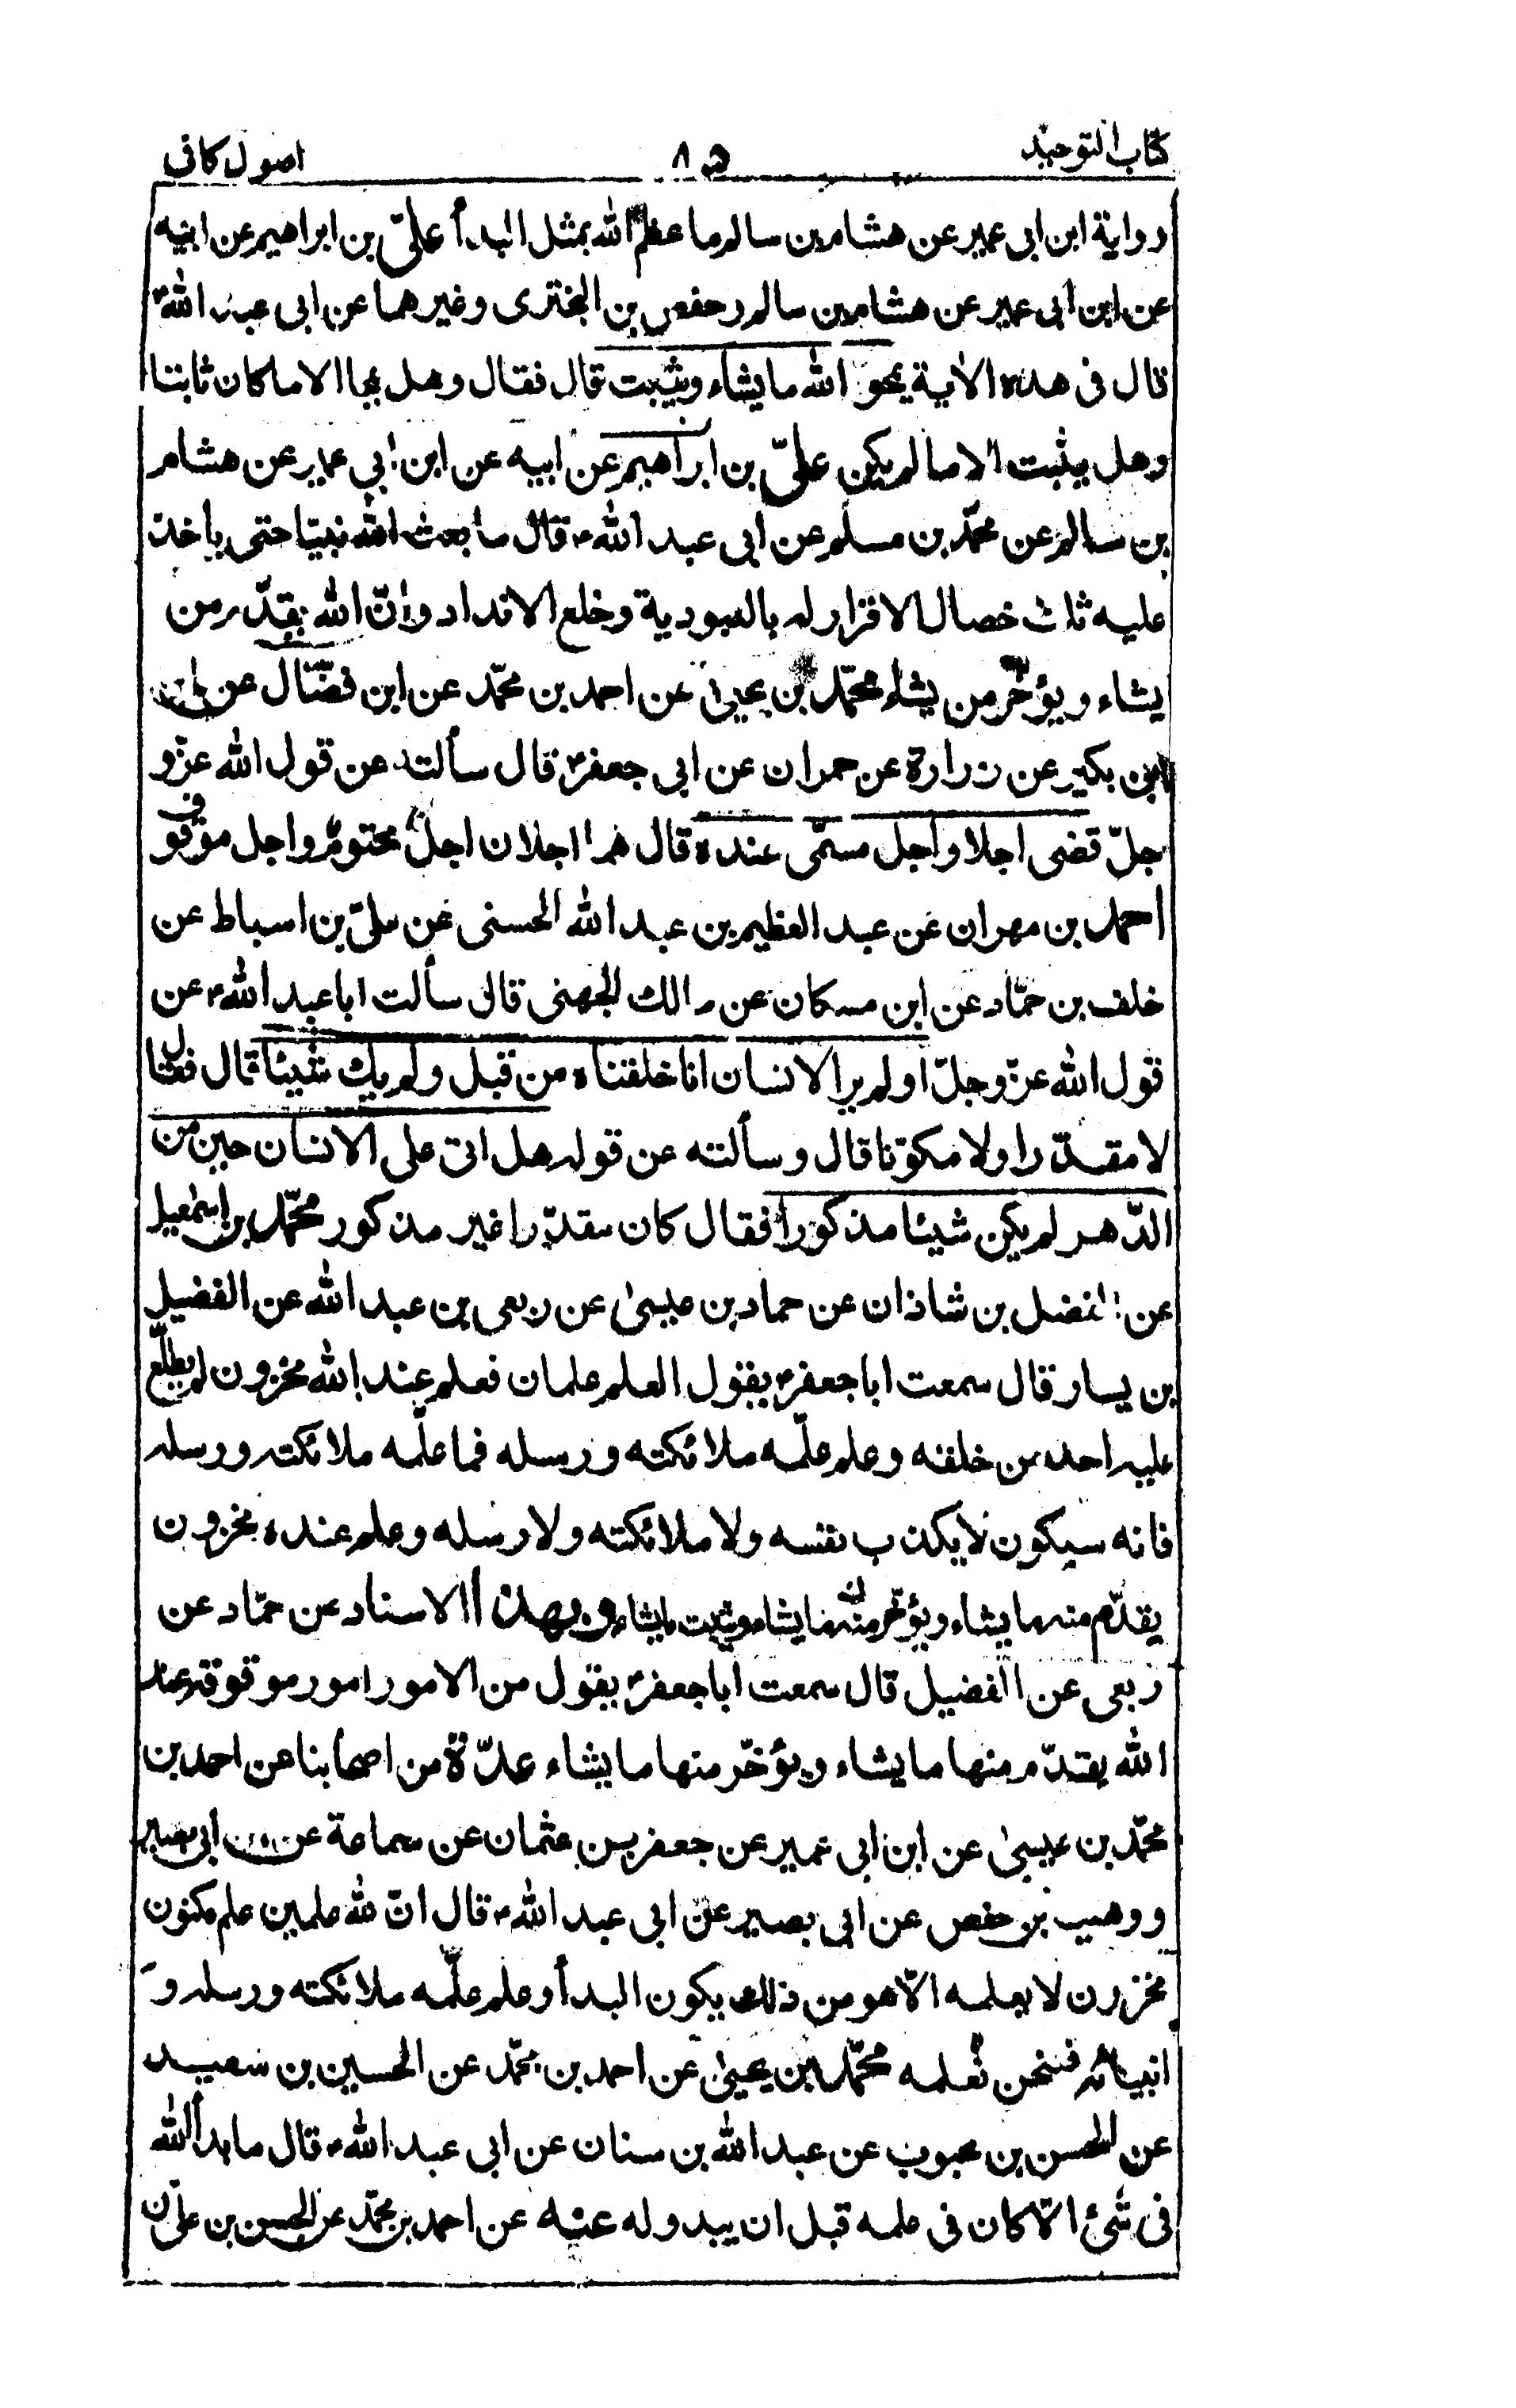 كتاب التوحيد ٨٥ اصول كافى
رواية ابن ابى عمير عن هشام بن سالم ما عظم الله بمثل البدأ علىّ بن ابراهيم عن ابيه
عن ابن ابى عمير عن هشام بن سالم و حفص بن البخترى وغيرهما عن ابى عبد الله ع
قال فى هذه الاية يمحو الله ما يشاء ويثبت قال فقال وهل يمحا الا ما كان ثابتا
وهل يثبت الا ما لم يكن علىّ بن ابراهيم عن ابيه عن ابن ابي عمير عن هشام
بن سالم عن محمّد بن مسلم عن ابى عبد الله ع قال ما بعث الله نبيّا حتى ياخذ
عليه ثلث خصال الاقرار له بالعبودية وخلع الانداد وانّ الله يقدّر من
يشاء ويؤخّر من يشاء محمّد بن يحيىٰ عن احمد بن محمّد عن ابن فضّال عن
ابن بكير عن زرارة عن حمران عن ابى جعفر ع قال سألته عن قول الله عزّ و
جلّ قضى اجلا واجل مسمّى عنده قال هما اجلان اجل محتوم واجل موقوف
احمد بن مهران عن عبد العظيم بن عبد الله الحسنى عن علىّ بن اسباط عن
خلف بن حمّاد عن ابن مسكان عن مالك الجهنى قال سألت ابا عبد الله ع عن
قول الله عزّ وجلّ اولم ير الانسان انا خلقناه من قبل ولم يك شيئا قال فقال
لا مقدّرا ولا مكوّنا قال وسألته عن قوله هل اتى على الانسان حين من
الدّهر لم يكن شيئا مذكورا فقال كان مقدّرا غير مذكور محمّد بن اسمٰعيل
عن الفضل بن شاذان عن حماد بن عيسىٰ عن ربعى بن عبد الله عن الفضيل
بن يسار قال سمعت ابا جعفر ع يقول العلم علمان فعلم عند الله مخزون لم يطّلع
عليه احدا من خلقه وعلم علّمه ملائكته ورسله فما علّمه ملائكته ورسله
فانه سيكون لا يكذب نفسه ولا ملائكته ولا رسله وعلم عنده مخزون
يقدّم منه ما يشاء ويؤخّر منه ما يشاء ويثبت ما يشاء وبهذا الاسناد عن حمّاد عن
ربعى عن الفضيل قال سمعت ابا جعفر ع يقول من الامور امور موقوفة عند
الله يقدّم منها ما يشاء ويؤخّر منها ما يشاء عدّة من اصحابنا عن احمد بن
محمّد بن عيسىٰ عن ابن ابى عمير عن جعفر بن عثمان عن سماعة عن ابى بصير
ووهيب بن حفص عن ابى بصير عن ابى عبد الله ع قال انّ لله علمين علم مكنون
مخزون لا يعلمه الّا هو من ذلك يكون البدأ وعلم علّمه ملائكته ورسله و
انبيائه فنحن نعلمه محمّد بن يحيىٰ عن احمد بن محمّد عن الحسين بن سعيد
عن الحسن بن محبوب عن عبد الله بن سنان عن ابى عبد الله ع قال ما بدأ لله
فى شئ الّا كان فى علمه قبل ان يبدو له عنه عن احمد بن محمّد عن الحسن بن علىّ بن